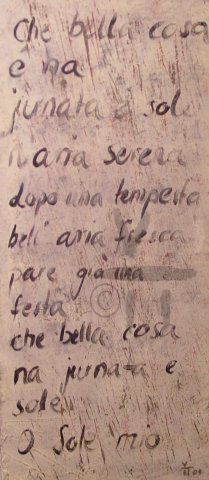 Che bella cosa
è na
jurnata è sole
n'aria serena
dopo una tempesta
bell' aria fresca
pare già una
festa
che bella cosa
na jurnata e
sole
O Sole mio
©